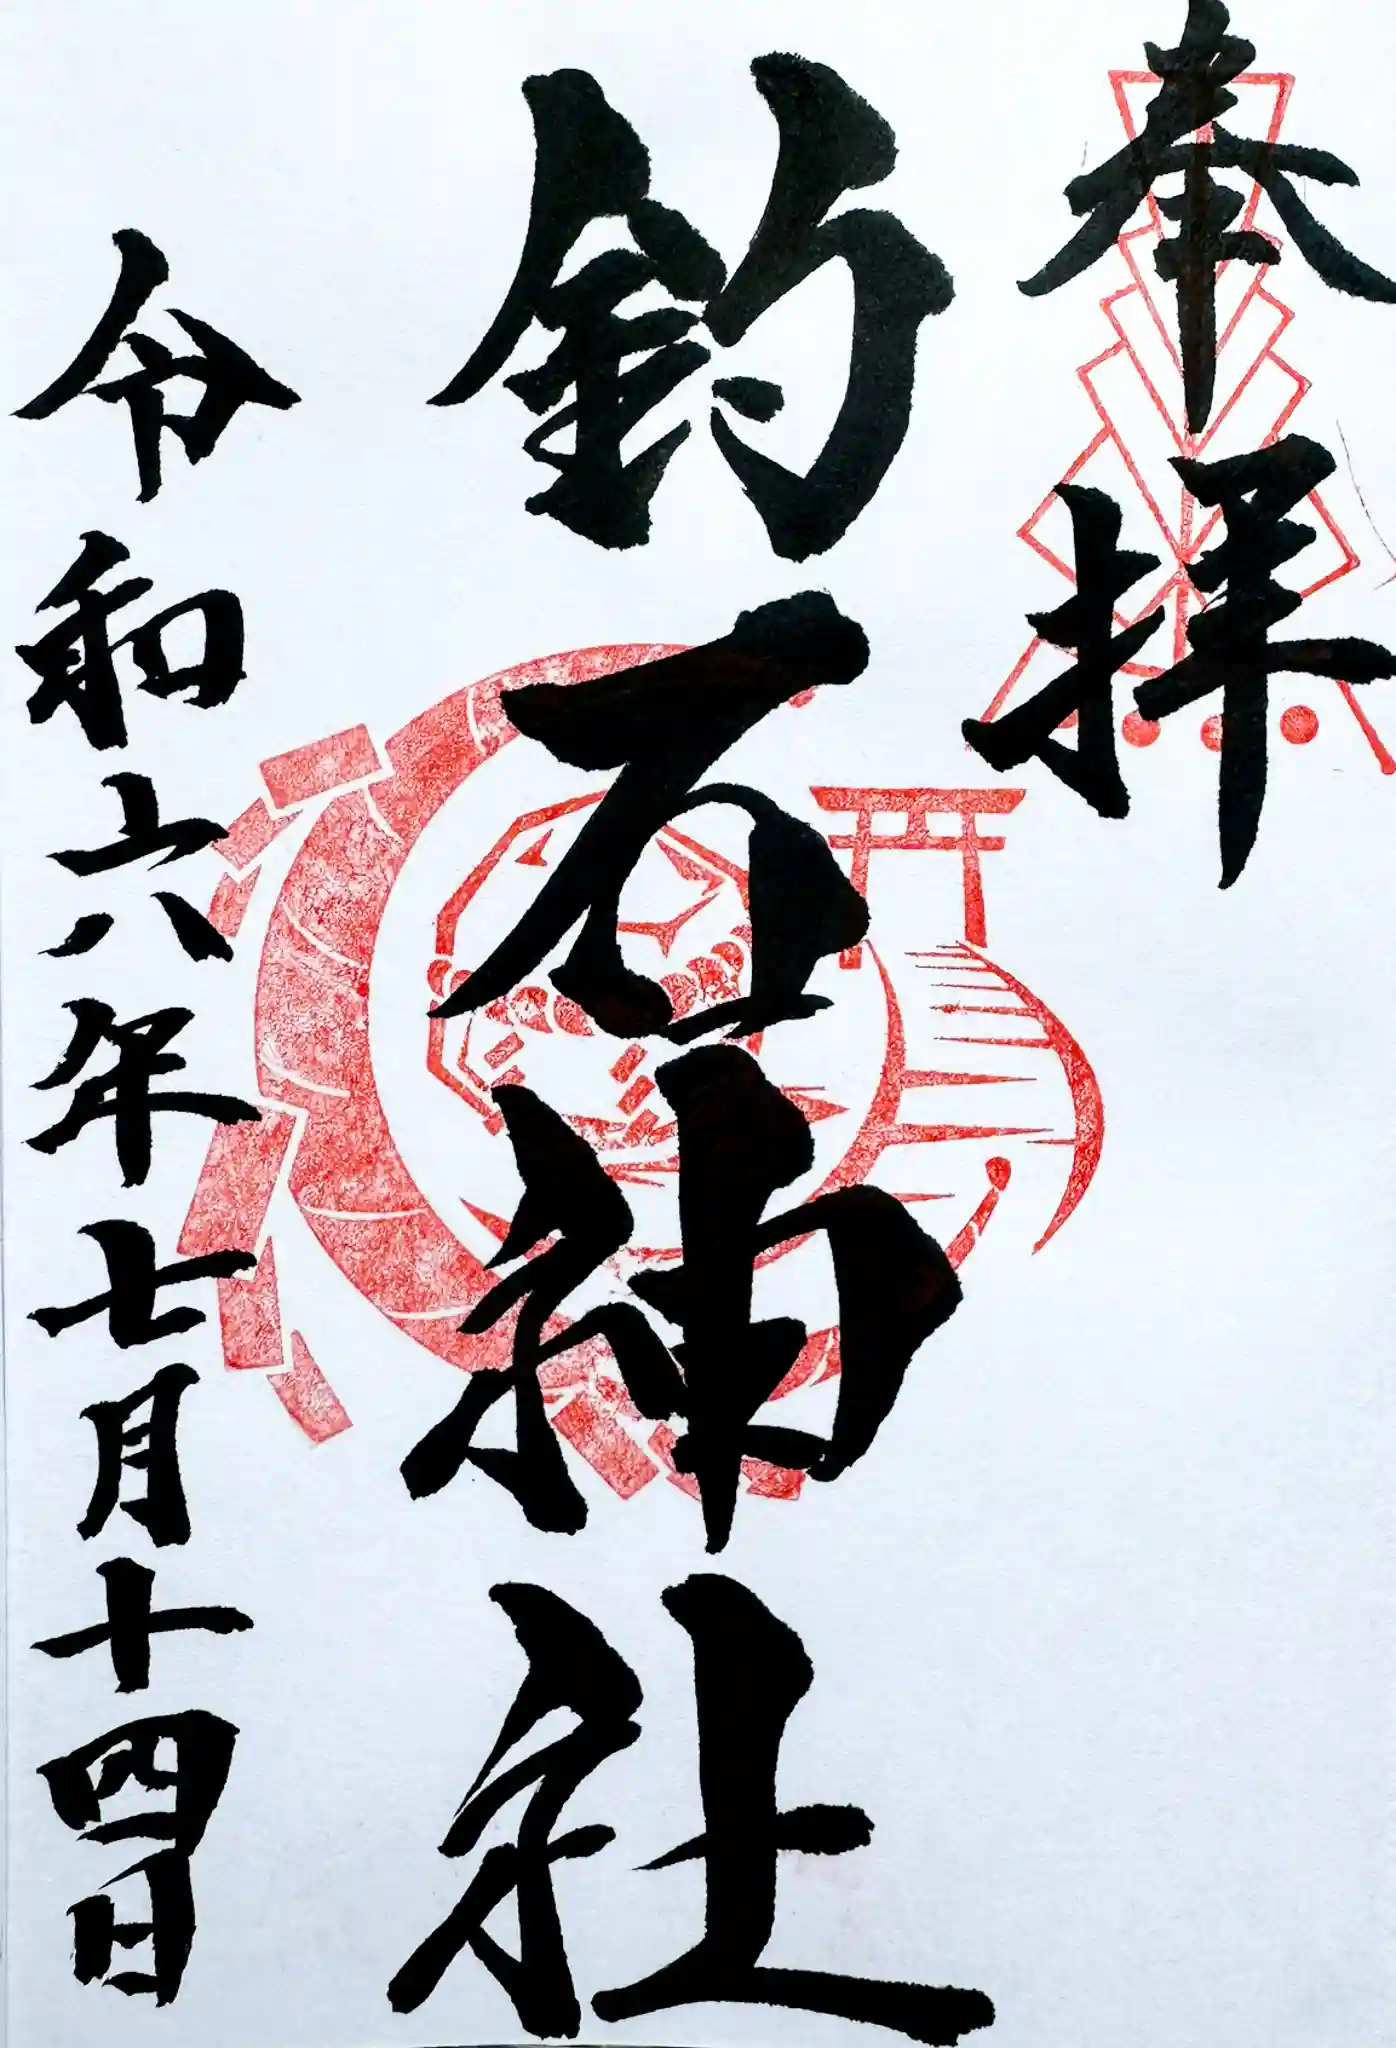 奉拝
釣石神社
令和六年七月十四日